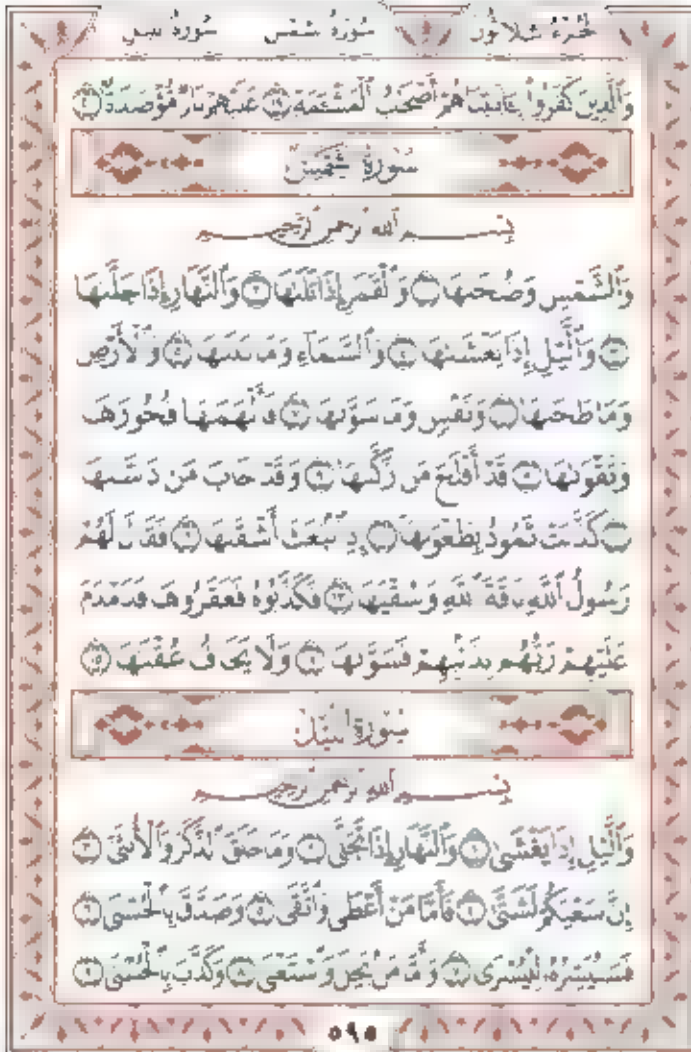 الجزء الثلاثون سورة الشمس سورة الليل
وَٱلَّذِينَ كَفَرُوا۟ بِـَٔايَـٰتِنَا هُمْ أَصْحَـٰبُ ٱلْمَشْـَٔمَةِ ١٩ عَلَيْهِمْ نَارٌ مُّؤْصَدَةٌۢ ٢٠
سورة الشمس
بسم الله الرحمن الرحيم
وَٱلشَّمْسِ وَضُحَىٰهَا ١ وَٱلْقَمَرِ إِذَا تَلَىٰهَا ٢ وَٱلنَّهَارِ إِذَا جَلَّىٰهَا
٣ وَٱلَّيْلِ إِذَا يَغْشَىٰهَا ٤ وَٱلسَّمَآءِ وَمَا بَنَىٰهَا ٥ وَٱلْأَرْضِ
وَمَا طَحَىٰهَا ٦ وَنَفْسٍ وَمَا سَوَّىٰهَا ٧ فَأَلْهَمَهَا فُجُورَهَا
وَتَقْوَىٰهَا ٨ قَدْ أَفْلَحَ مَن زَكَّىٰهَا ٩ وَقَدْ خَابَ مَن دَسَّىٰهَا
١٠ كَذَّبَتْ ثَمُودُ بِطَغْوَىٰهَآ ١١ إِذِ ٱنۢبَعَثَ أَشْقَىٰهَا ١٢ فَقَالَ لَهُمْ
رَسُولُ ٱللَّهِ نَاقَةَ ٱللَّهِ وَسُقْيَـٰهَا ١٣ فَكَذَّبُوهُ فَعَقَرُوهَا فَدَمْدَمَ
عَلَيْهِمْ رَبُّهُم بِذَنۢبِهِمْ فَسَوَّىٰهَا ١٤ وَلَا يَخَافُ عُقْبَـٰهَا ١٥
سورة الليل
بسم الله الرحمن الرحيم
وَٱلَّيْلِ إِذَا يَغْشَىٰ ١ وَٱلنَّهَارِ إِذَا تَجَلَّىٰ ٢ وَمَا خَلَقَ ٱلذَّكَرَ وَٱلْأُنثَىٰٓ ٣
إِنَّ سَعْيَكُمْ لَشَتَّىٰ ٤ فَأَمَّا مَنْ أَعْطَىٰ وَٱتَّقَىٰ ٥ وَصَدَّقَ بِٱلْحُسْنَىٰ ٦
فَسَنُيَسِّرُهُۥ لِلْيُسْرَىٰ ٧ وَأَمَّا مَنۢ بَخِلَ وَٱسْتَغْنَىٰ ٨ وَكَذَّبَ بِٱلْحُسْنَىٰ ٩
٥٩٥